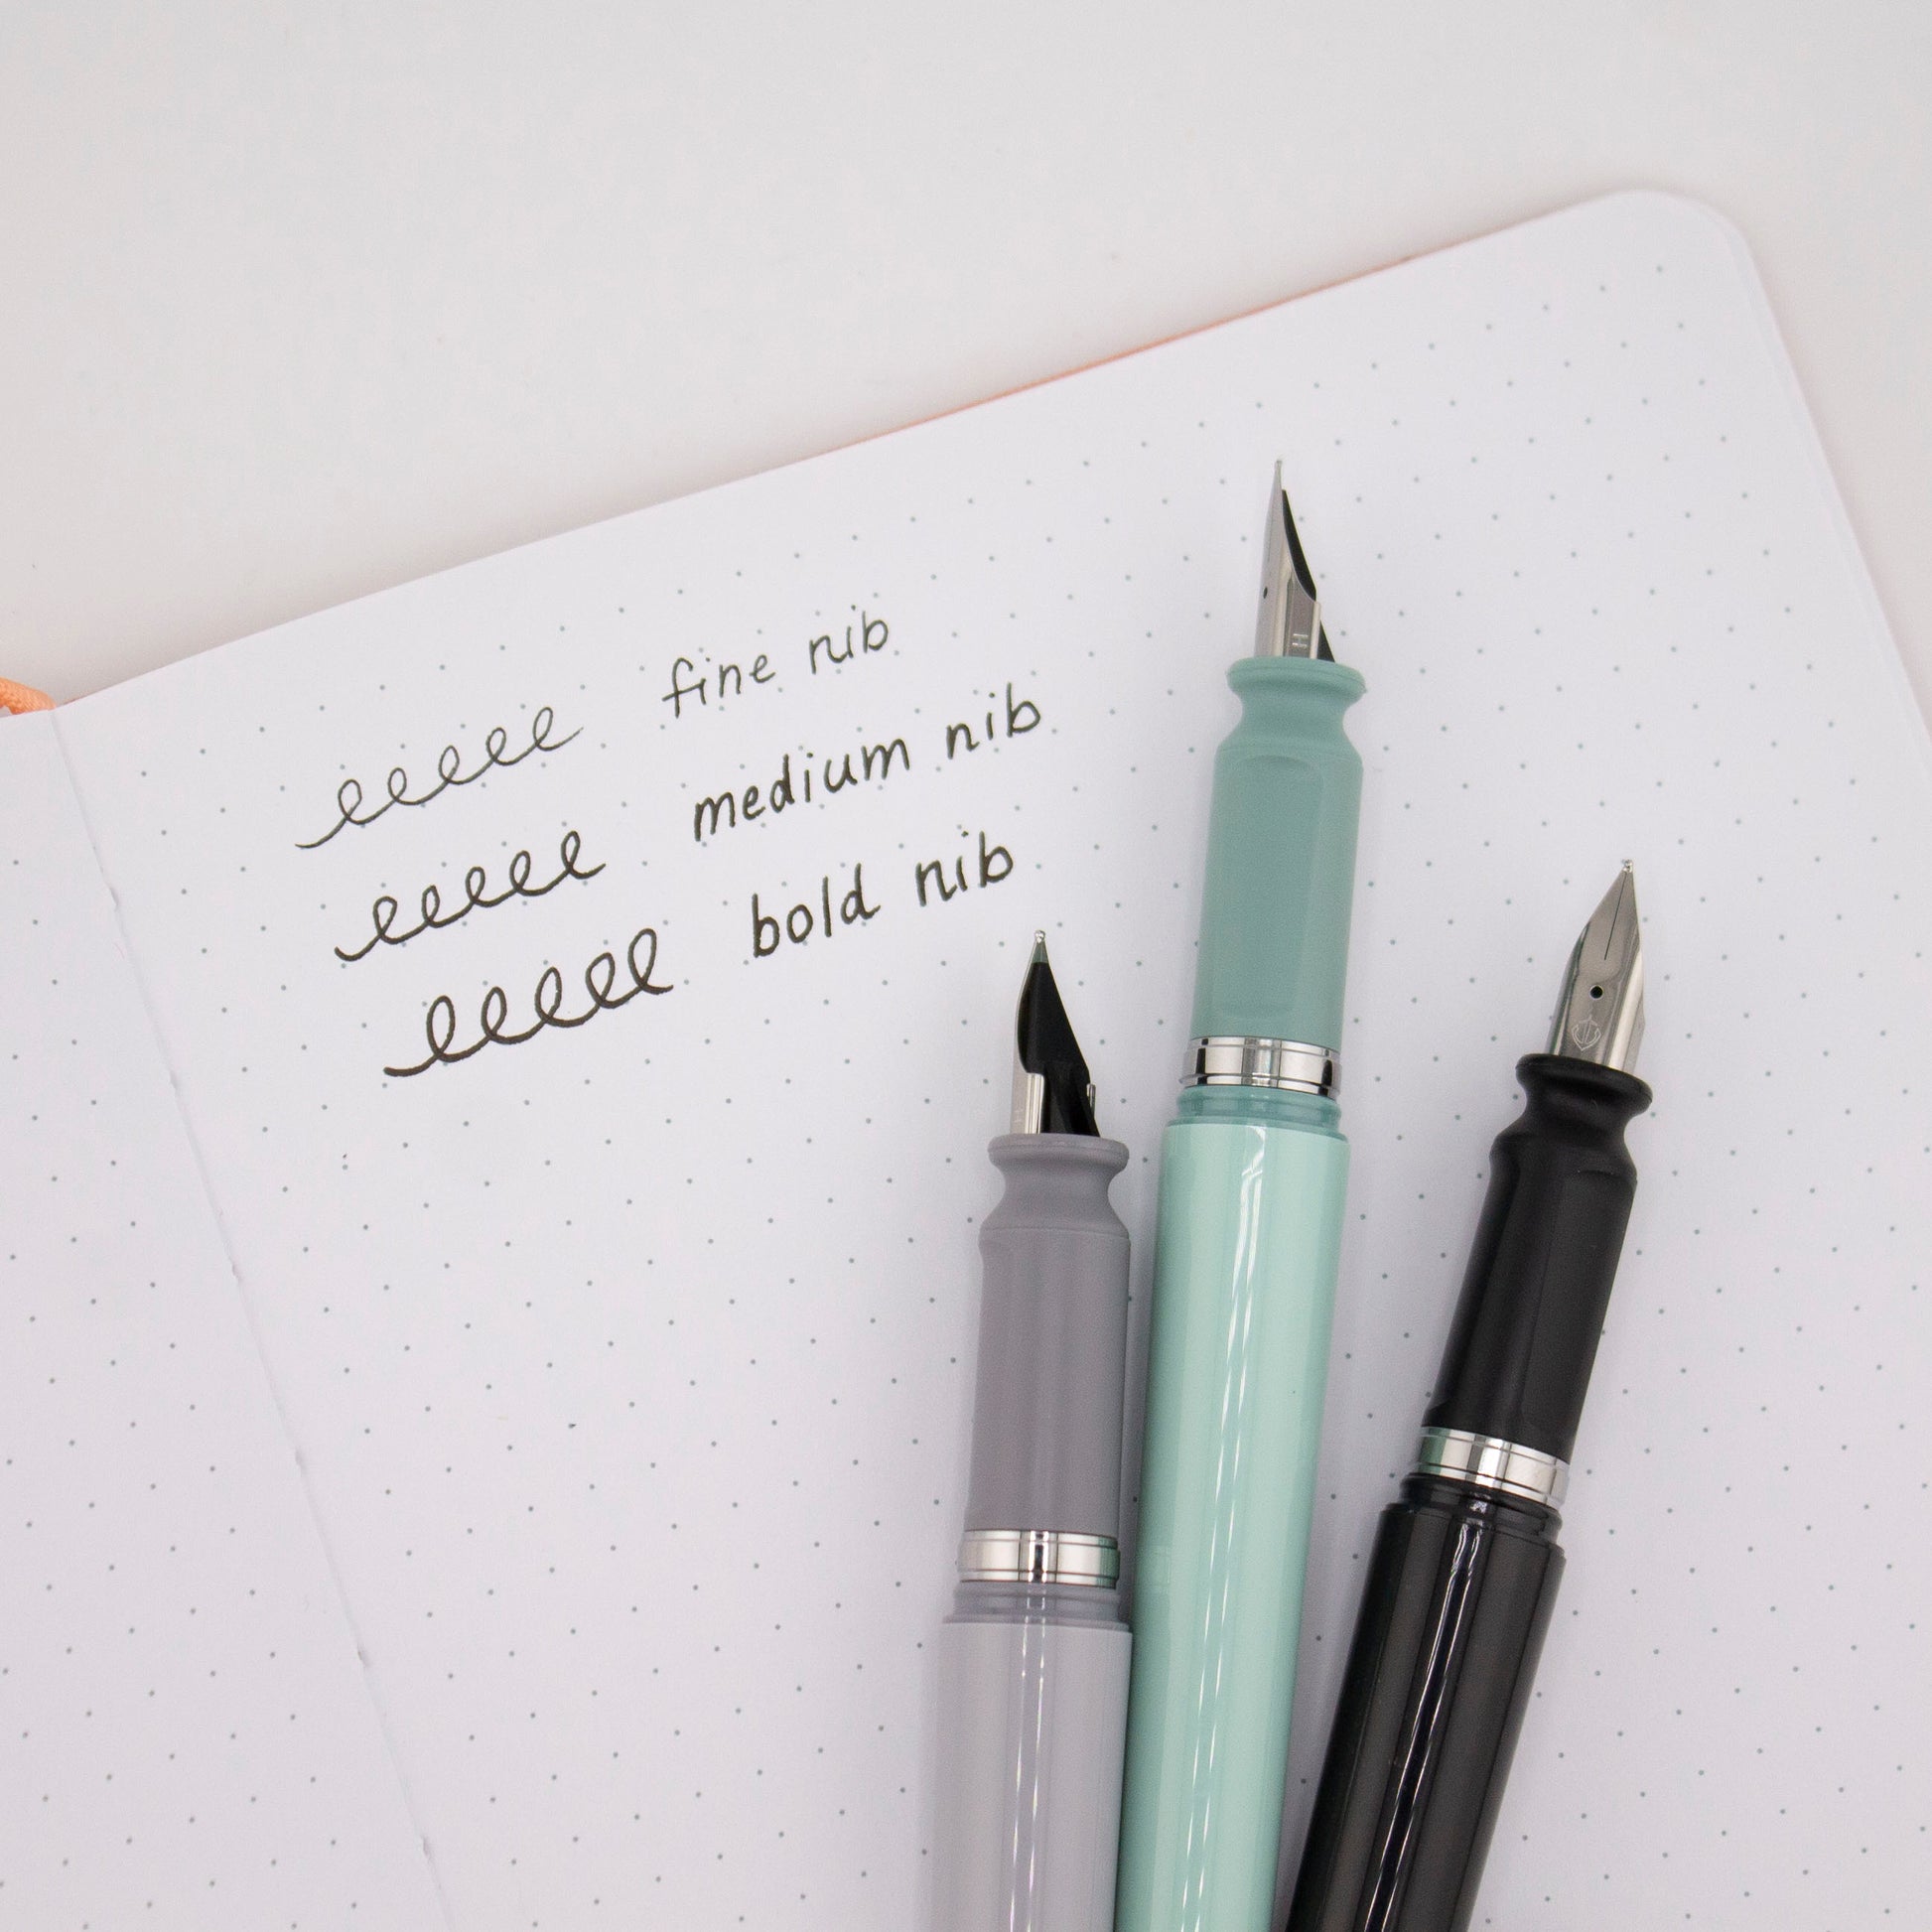 fine nib
medium nib
bold nib